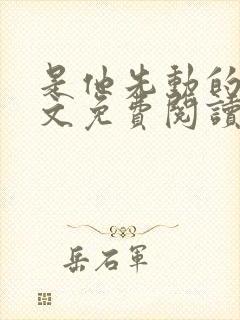 是他先動的
文免費閱讀
岳石軍